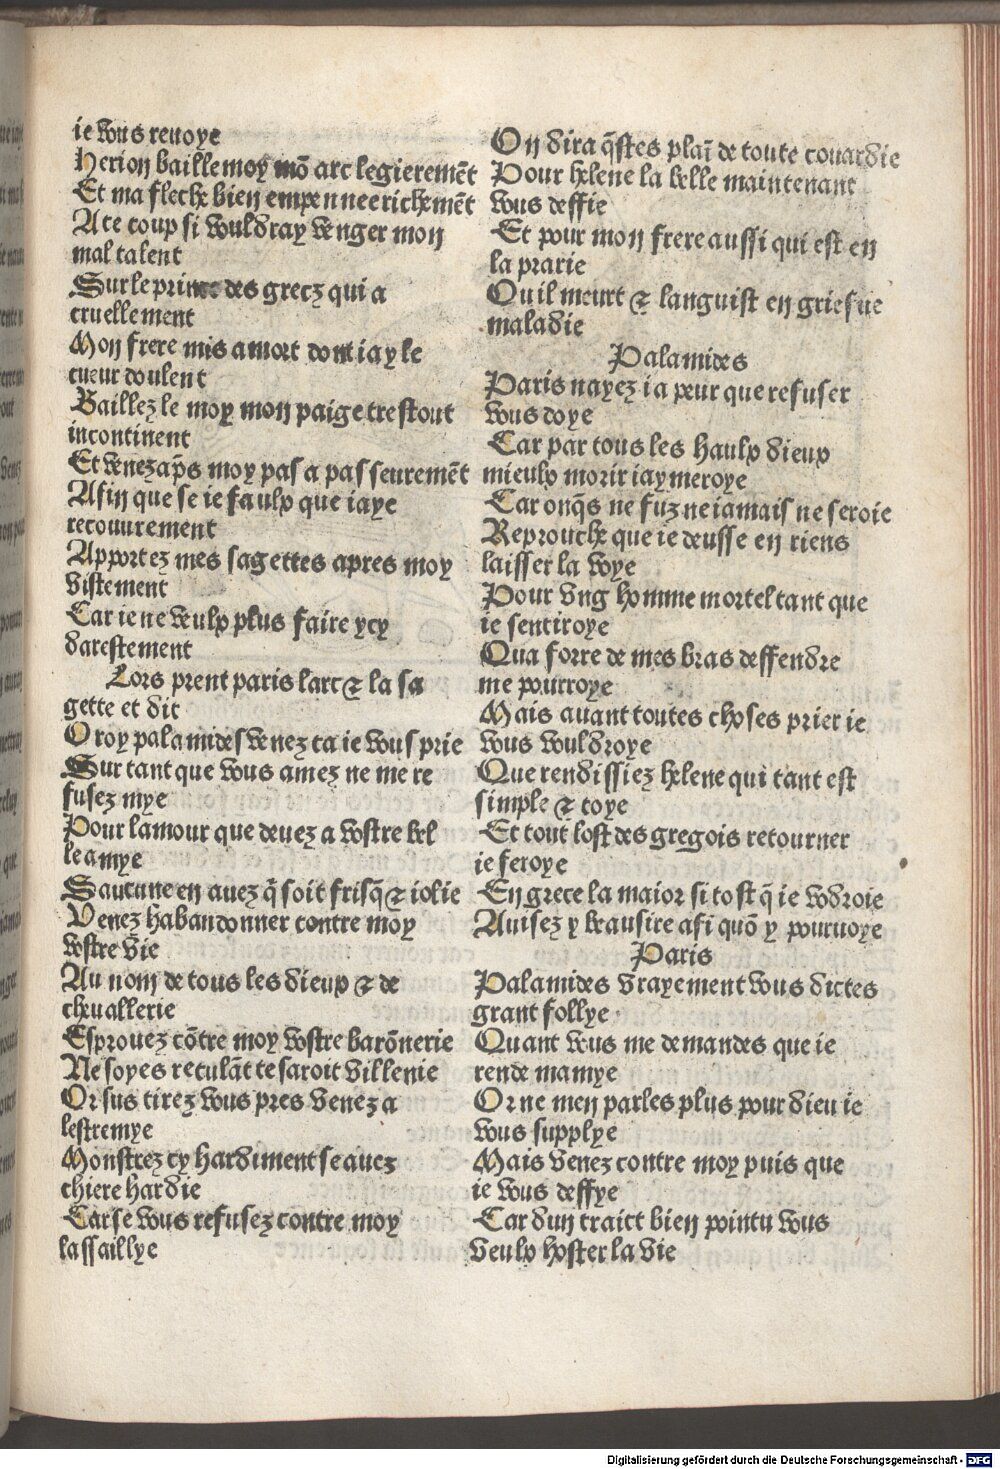 ie vous renoye
Herion baille moy mõ arc legieremẽt
Et ma fleche bien empennee richemẽt
A ce coup si vouldray venger mon
mal talent
Sur le prince des grecz qui a
cruellement
Mon frere mis a mort dont iay le
cueur doulent
Baillez le moy mon paige trestout
incontinent
Et venez aps̃ moy pas a pas seuremẽt
Afin que se ie faulx que iaye
recouurement
Apportez mes sagettes apres moy
vistement
Car ie ne veulx plus faire ycy
darestement
Lors prent paris larc ⁊ la sa
gette et dit
O roy palamides venez ca ie vous prie
Sur tant que vous amez ne me re
fusez mye
Pour lamour que deuez a vostre bel
le amye
Saucune en auez q̃ soit frisq̃ ⁊ iolie
Venez habandonner contre moy
vostre vie
Au nom de tous les dieux ⁊ de
cheuallerie
Esprouez cõtre moy vostre barõnerie
Ne soyes reculãt ce saroit villenie
Or sus tirez vous pres venez a
lestremye
Monstrez cy hardiment se auez
chiere hardie
Car se vous refusez contre moy
lassaillye
On dira q̃stes plaĩ de toute couardie
Pour helene la belle maintenant
vous deffie
Et pour mon frere aussi qui est en
la prarie
Qu il meurt ⁊ languist en griefue
maladie
Palamides
Paris nayez ia peur que refuser
vous doye
Car par tous les haulx dieux
mieulx morir iaymeroye
Car onq̃s ne fuz ne iamais ne seroie
Reprouche que ie deusse en riens
laisser la voye
Pour vng homme mortel tant que
ie sentiroye
Qua forre de mes bras deffendre
me pourroye
Mais auant toutes choses prier ie
vous vouldroye
Que rendissiez helene qui tant est
simple ⁊ coye
Et tout lost des gregois retourner
ie feroye
En grece la maior si tost q̃ ie vdroie
Auisez y beausire afi quõ y pouruoye
Paris
Palamides vrayement vous dictes
grant follye
Quant vous me demandes que ie
rende mamye
Or ne men parles plus pour dieu ie
vous supplye
Mais venez contre moy puis que
ie vous deffye
Car dun traict bien pointu vous
veulx hoster la vie
Digitalisierung gefördert durch die Deutsche Forschungsgemeinschaft - DFG